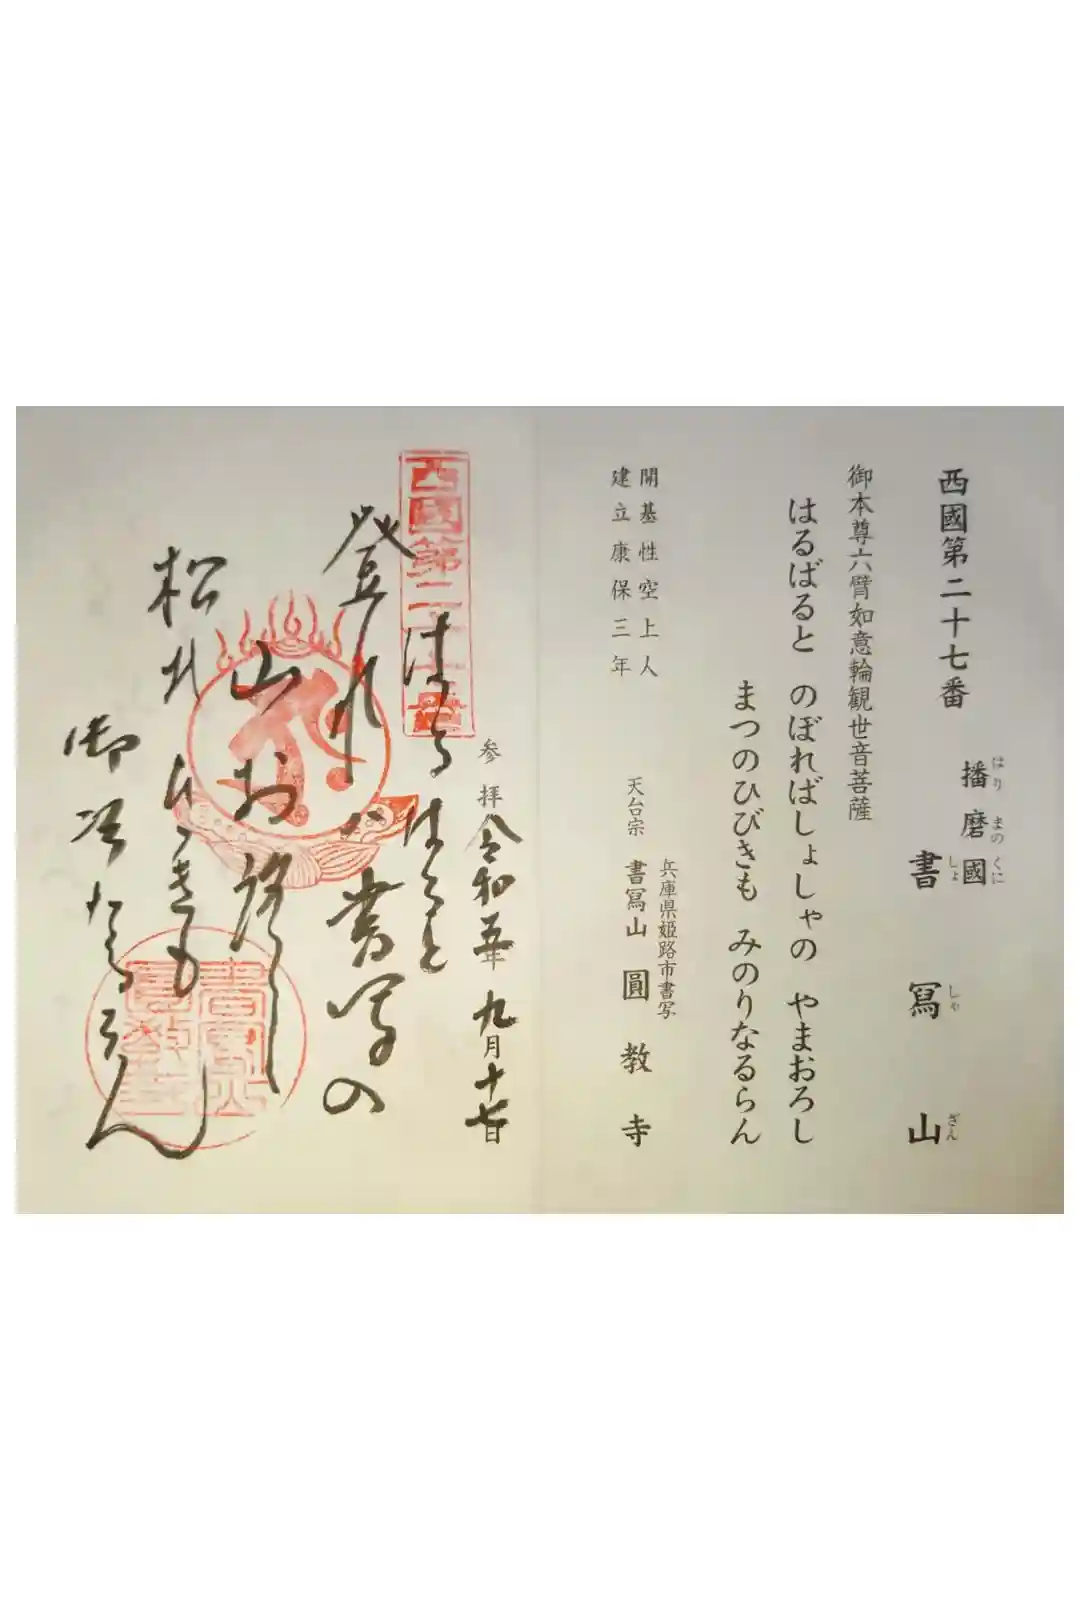 西國第二十七番
播磨國
はり まの くに
書寫山
しょ しゃ ざん
御本尊六臂如意輪観世音菩薩
はるばると のぼればしょしゃの やまおろし
まつのひびきも みのりなるらん
開基性空上人
建立康保三年
兵庫県姫路市書写
天台宗 書寫山 圓教寺
参拝令和五年九月十七日
西國第二十七番
はるばると
登れば書写の
山おろし
松のひゞきも
御法なるらん
書寫山圓教寺